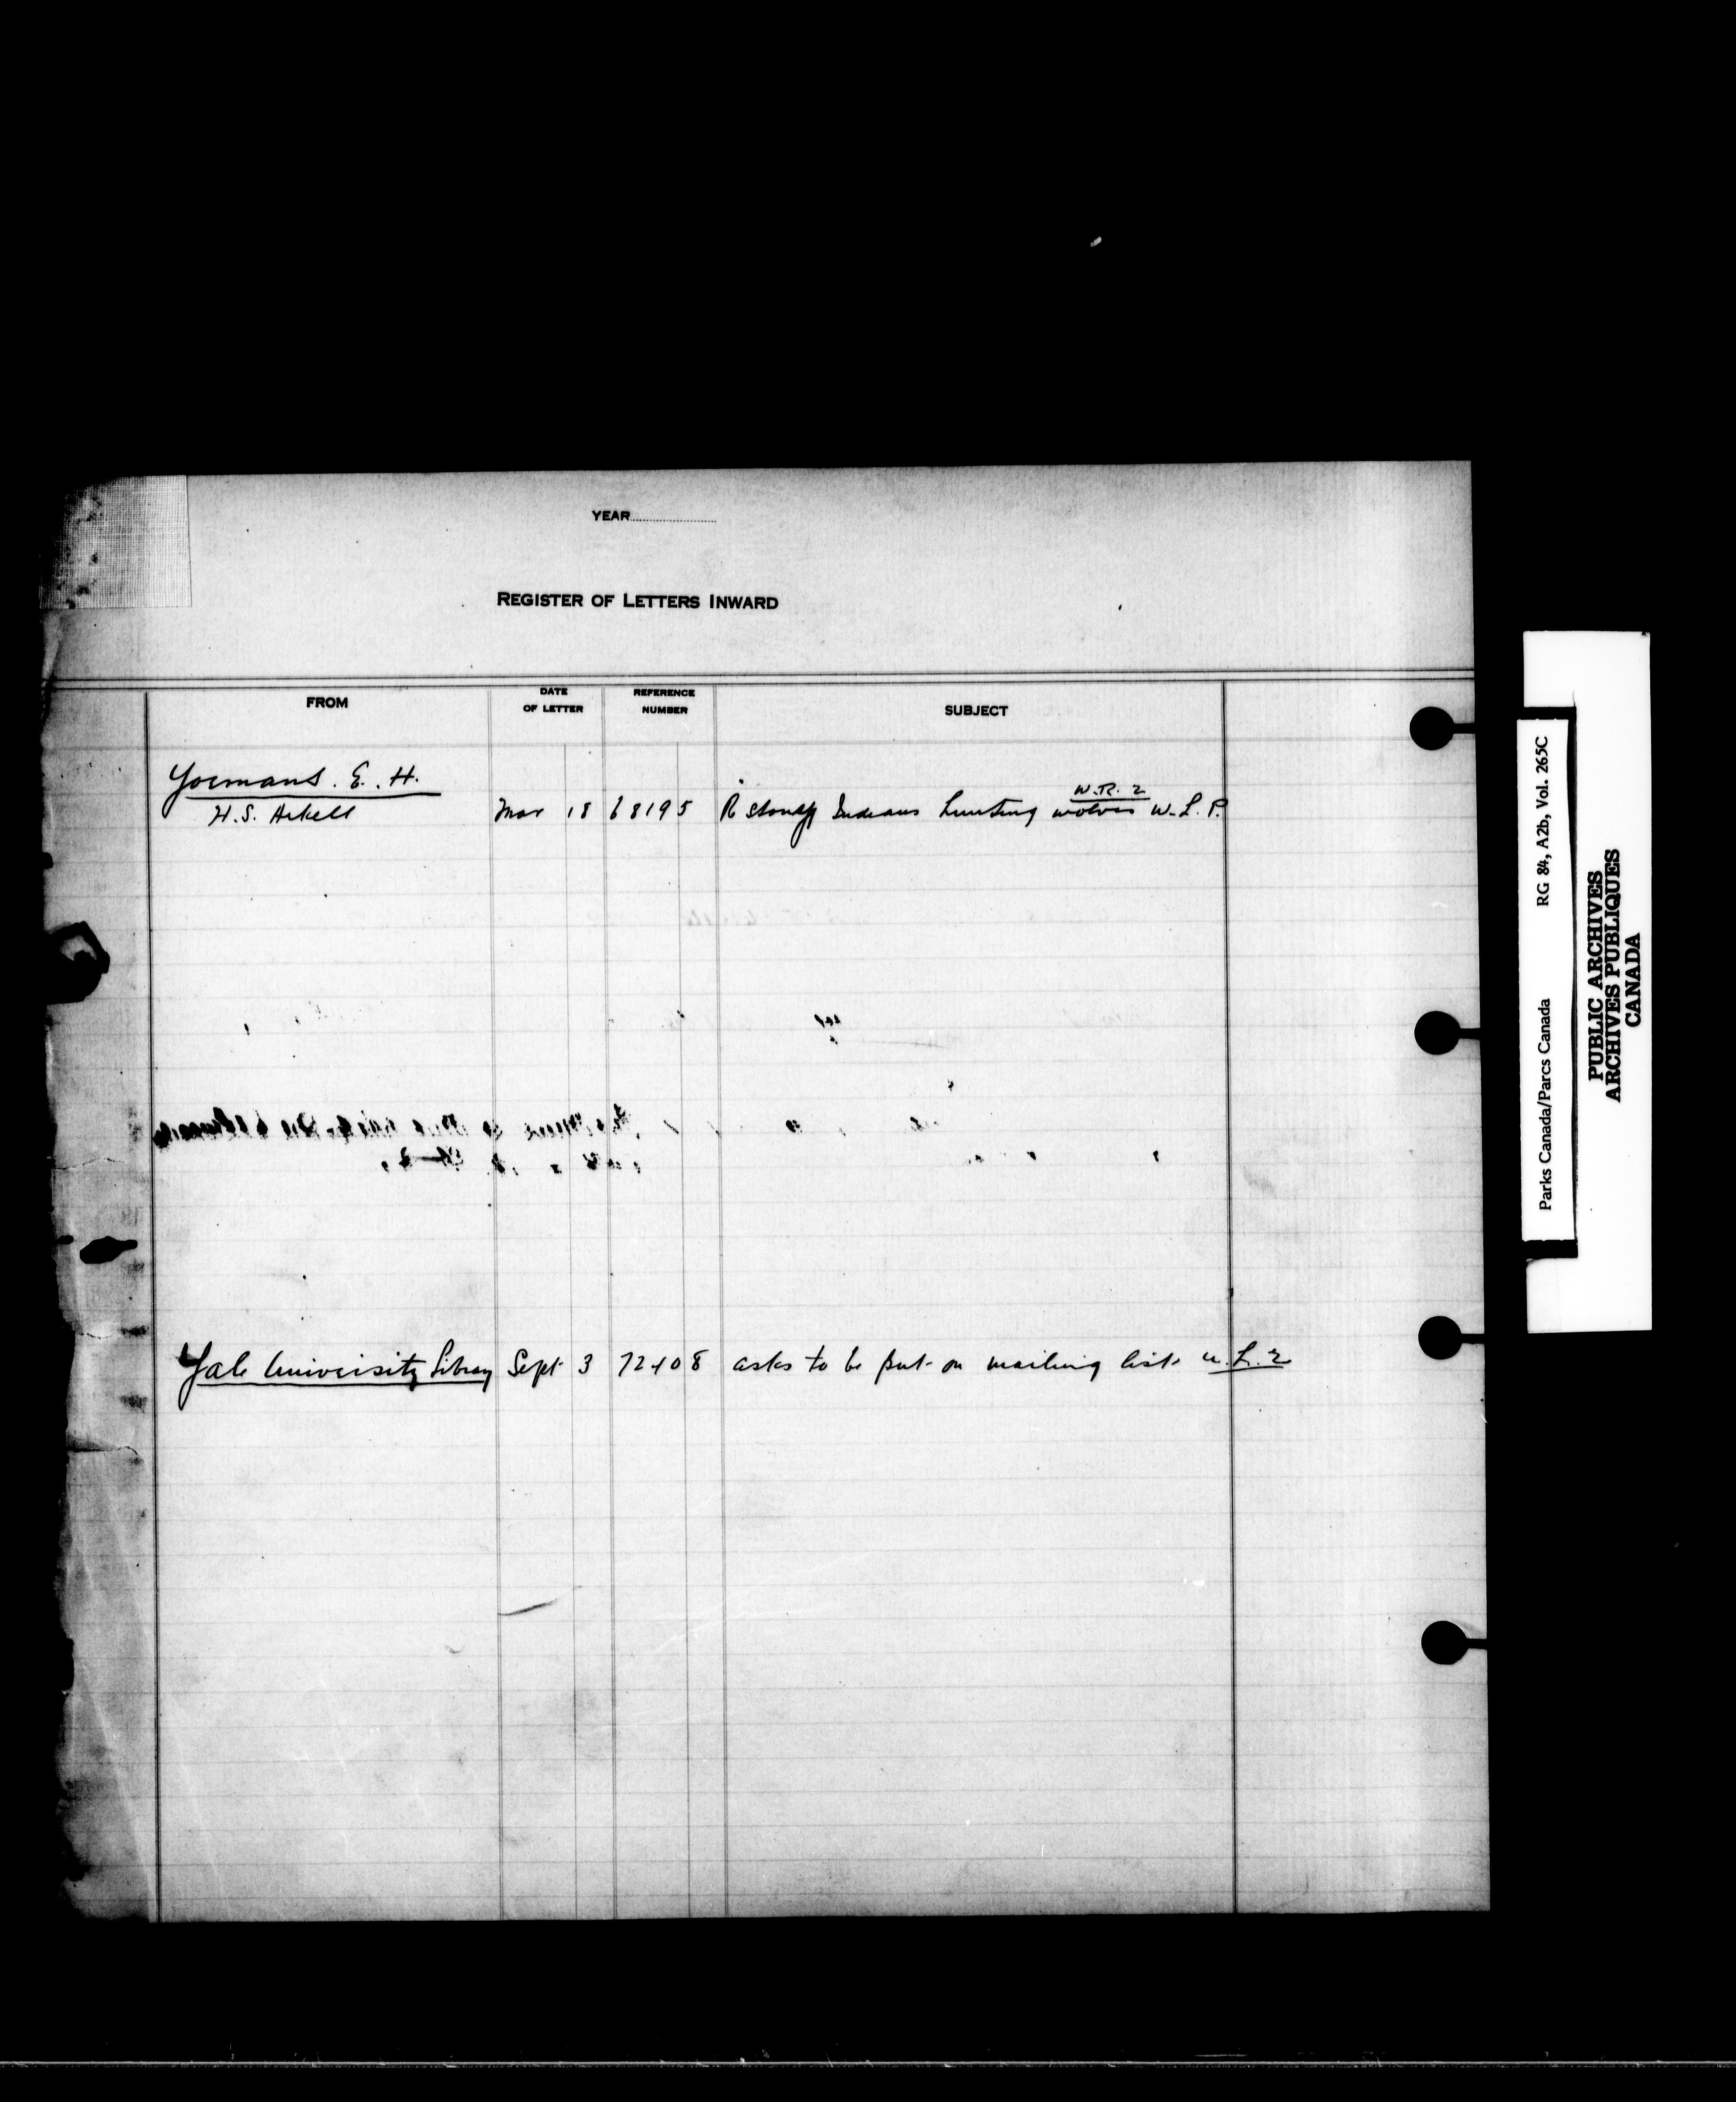 YEAR
REGISTER OF LETTERS INWARD
FROM DATE OF LETTER REFERENCE NUMBER SUBJECT
Yoemans. E. H.
W.R. 2
H.S. Arkell Mar 18 68195 R Stoney Indians hunting wolves W.L.P.
Yale University Library Sept 3 72408 asks to be put on mailing list U.L.2
Parks Canada/Parcs Canada RG 84, A2b, Vol. 265C
PUBLIC ARCHIVES
ARCHIVES PUBLIQUES
CANADA